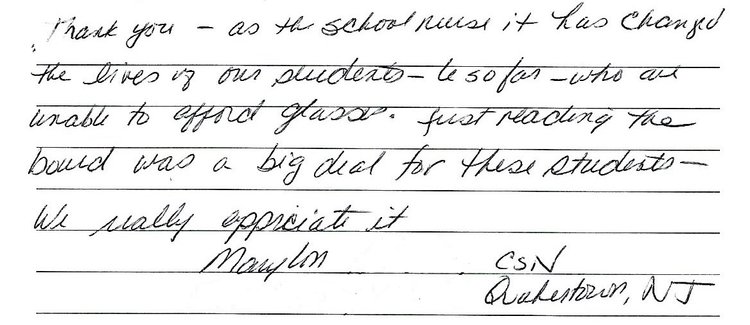 Thank you – as the school nurse it has changed
the lives of our students – 6 so far – who are
unable to afford glasses. Just reading the
board was a big deal for these students –
We really appriciate it
Marylon CSN
Quakertown, NJ